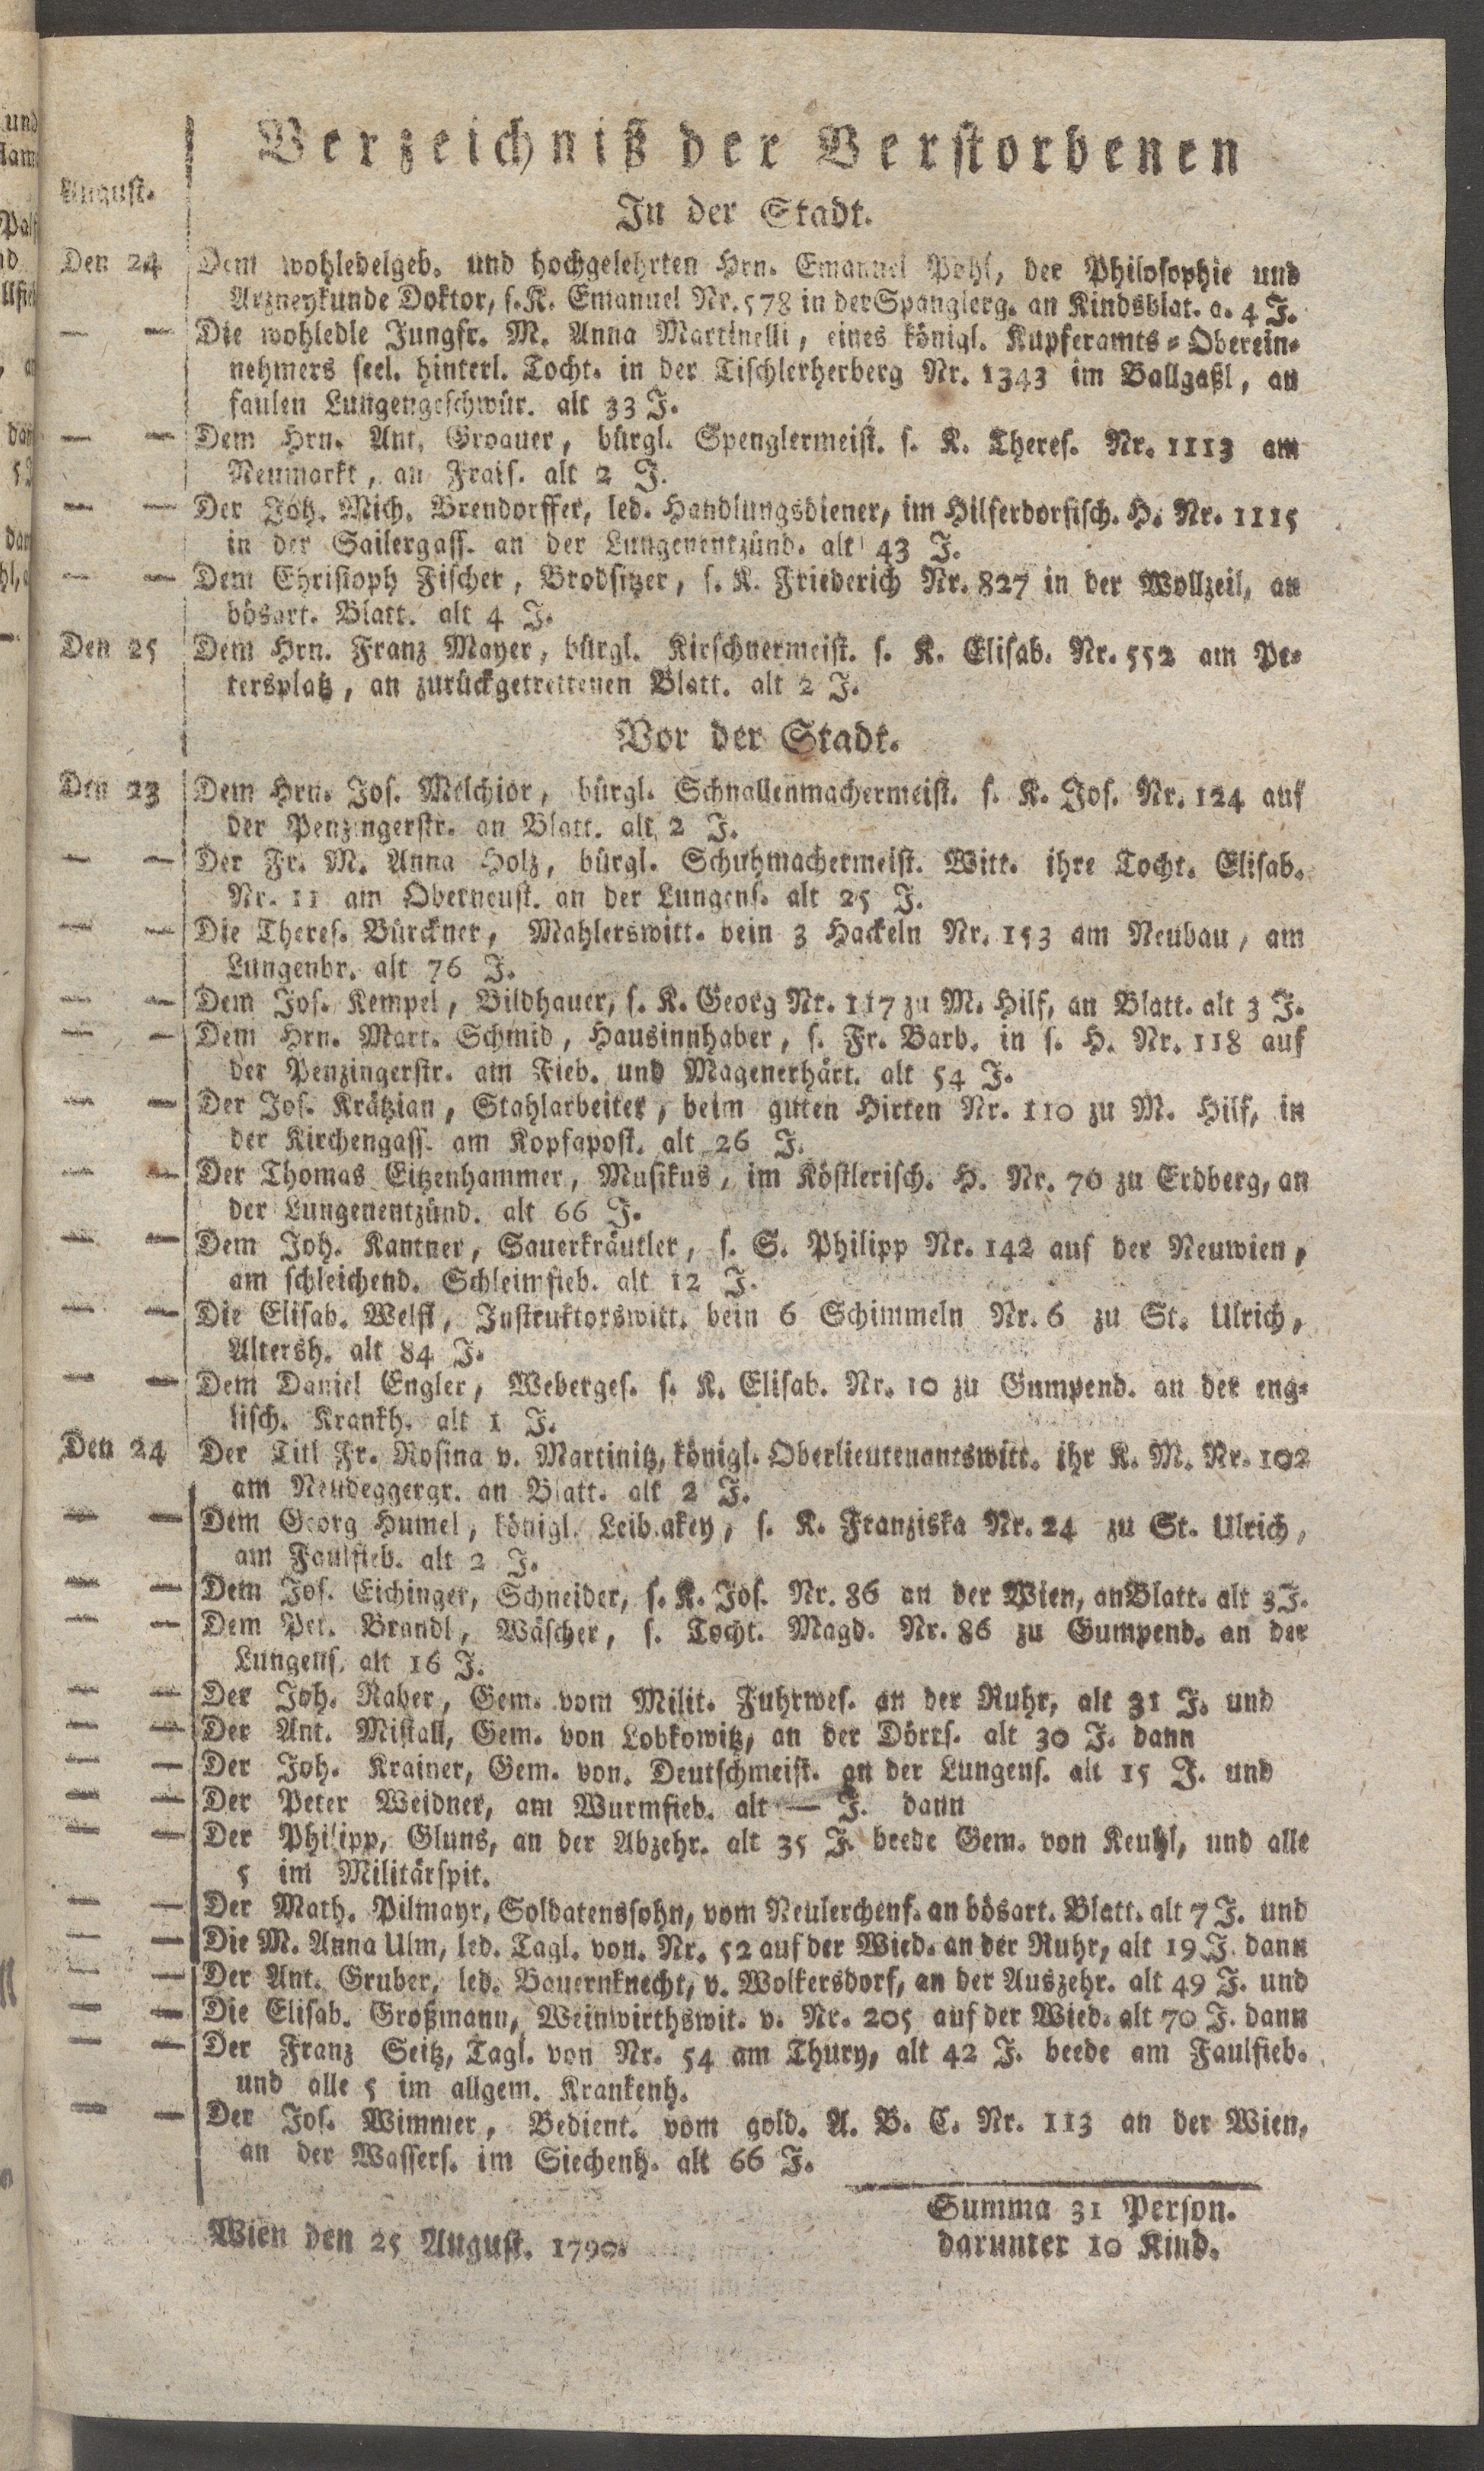 Verzeichniß der Verstorbenen
August.
In der Stadt.
Den 24 Dem wohledelgeb. und hochgelehrten Hrn. Emanuel Pohl, der Philosophie und
Arzneykunde Doktor, s. K. Emanuel Nr. 578 in der Spanglerg. an Kindsblat. a. 4 J.
— — Die wohledle Jungfr. M. Anna Martinelli, eines königl. Kupferamts-Oberein-
nehmers seel. hinterl. Tocht. in der Tischlerherberg Nr. 1343 im Ballgaßl, an
faulen Lungengeschwür. alt 33 J.
— — Dem Hrn. Ant. Groauer, bürgl. Spenglermeist. s. K. Theres. Nr. 1113 am
Neumarkt, an Frais. alt 2 J.
— — Der Joh. Mich. Brendorffer, led. Handlungsdiener, im Hilferdorfisch. H. Nr. 1115
in der Sailergass. an der Lungenentzünd. alt 43 J.
— — Dem Christoph Fischer, Brodsitzer, s. K. Friederich Nr. 827 in der Wollzeil, an
bösart. Blatt. alt 4 J.
Den 25 Dem Hrn. Franz Mayer, bürgl. Kirschnermeist. s. K. Elisab. Nr. 552 am Pe-
tersplatz, an zurückgetrettenen Blatt. alt 2 J.
Vor der Stadt.
Den 23 Dem Hrn. Jos. Melchior, bürgl. Schnallenmachermeist. s. K. Jos. Nr. 124 auf
der Penzingerstr. an Blatt. alt 2 J.
— — Der Fr. M. Anna Holz, bürgl. Schuhmachermeist. Witt. ihre Tocht. Elisab.
Nr. 11 am Oberneust. an der Lungens. alt 25 J.
— — Die Theres. Bürckner, Mahlerswitt. bein 3 Hackeln Nr. 153 am Neubau, am
Lungenbr. alt 76 J.
— — Dem Jos. Kempel, Bildhauer, s. K. Georg Nr. 117 zu M. Hilf, an Blatt. alt 3 J.
— — Dem Hrn. Mart. Schmid, Hausinnhaber, s. Fr. Barb. in s. H. Nr. 118 auf
der Penzingerstr. am Fieb. und Magenerhärt. alt 54 J.
— — Der Jos. Krätzian, Stahlarbeiter, beim guten Hirten Nr. 110 zu M. Hilf, in
der Kirchengass. am Kopfapost. alt 26 J.
— — Der Thomas Eitzenhammer, Musikus, im Köstlerisch. H. Nr. 70 zu Erdberg, an
der Lungenentzünd. alt 66 J.
— — Dem Joh. Kantner, Sauerkräutler, s. S. Philipp Nr. 142 auf der Neuwien,
am schleichend. Schleimfieb. alt 12 J.
— — Die Elisab. Welfl, Instruktorswitt. bein 6 Schimmeln Nr. 6 zu St. Ulrich,
Altersh. alt 84 J.
— — Dem Daniel Engler, Weberges. s. K. Elisab. Nr. 10 zu Gumpend. an der eng-
lisch. Krankh. alt 1 J.
Den 24 Der Titl Fr. Rosina v. Martinitz, königl. Oberlieutenantswitt. ihr K. M. Nr. 102
am Neudeggergr. an Blatt. alt 2 J.
— — Dem Georg Humel, königl. Leiblakey, s. K. Franziska Nr. 24 zu St. Ulrich,
am Faulfieb. alt 2 J.
— — Dem Jos. Eichinger, Schneider, s. K. Jos. Nr. 86 an der Wien, an Blatt. alt 3 J.
— — Dem Pet. Brandl, Wäscher, s. Tocht. Magd. Nr. 86 zu Gumpend. an der
Lungens. alt 16 J.
— — Der Joh. Raher, Gem. vom Milit. Fuhrwes. an der Ruhr, alt 31 J. und
— — Der Ant. Mistall, Gem. von Lobkowitz, an der Dörrs. alt 30 J. dann
— — Der Joh. Krainer, Gem. von. Deutschmeist. an der Lungens. alt 15 J. und
— — Der Peter Weidner, am Wurmfieb. alt — J. dann
— — Der Philipp, Gluns, an der Abzehr. alt 35 J. beede Gem. von Keuhl, und alle
5 im Militärspit.
— — Der Math. Pilmayr, Soldatenssohn, vom Neulerchenf. an bösart. Blatt. alt 7 J. und
— — Die M. Anna Ulm, led. Tagl. von. Nr. 52 auf der Wied. an der Ruhr, alt 19 J. dann
— Der Ant. Gruber, led. Bauernknecht, v. Wolkersdorf, an der Auszehr. alt 49 J. und
— — Die Elisab. Großmann, Weinwirthswit. v. Nr. 205 auf der Wied. alt 70 J. dann
— — Der Franz Seitz, Tagl. von Nr. 54 am Thury, alt 42 J. beede am Faulfieb.
und alle 5 im allgem. Krankenh.
— — Der Jos. Wimmer, Bedient. vom gold. A. B. C. Nr. 113 an der Wien,
an der Wassers. im Siechenh. alt 66 J.
Summa 31 Person.
darunter 10 Kind.
Wien den 25 August. 1790.